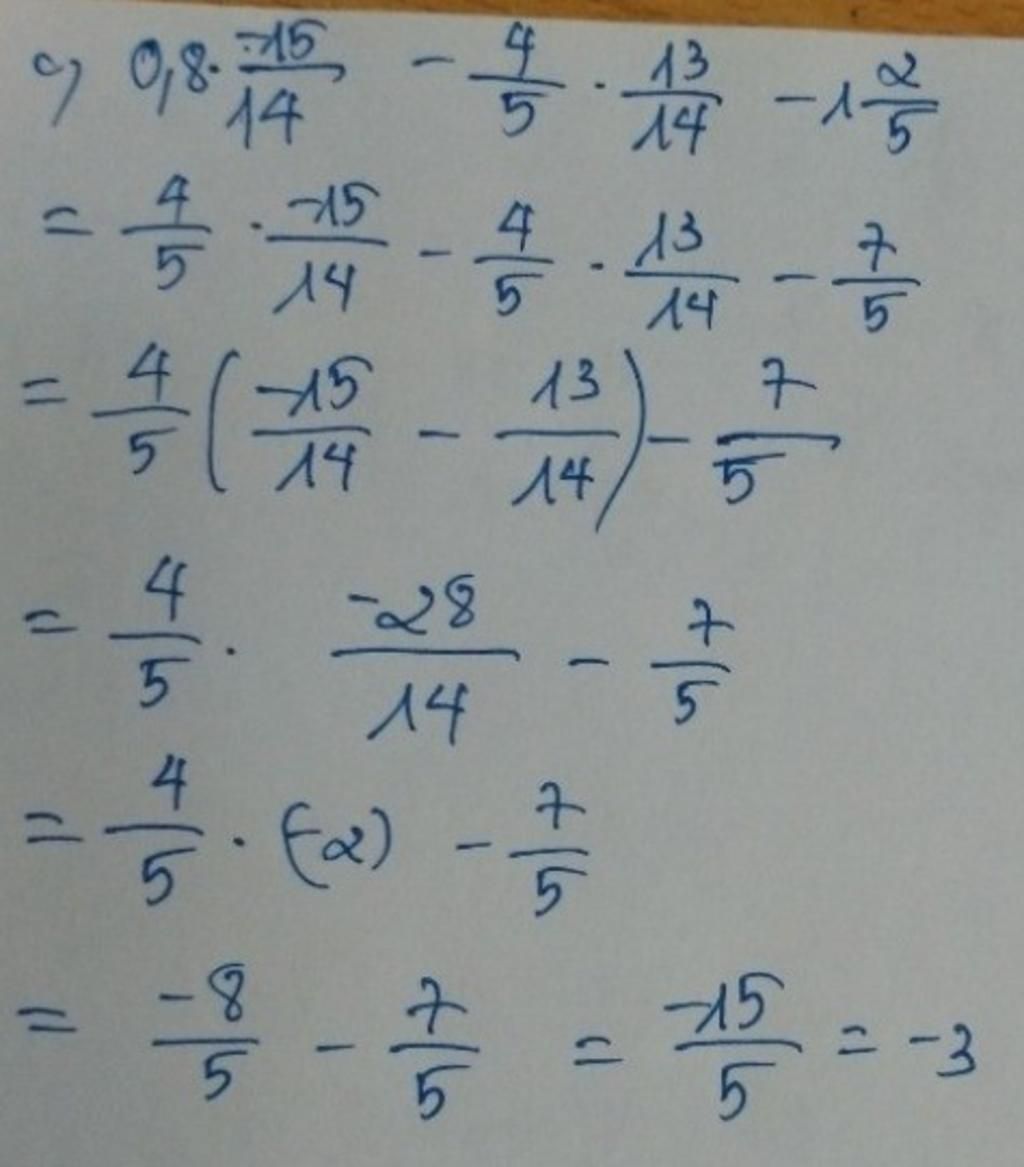 c) 0,8 · \frac{-15}{14} - \frac{4}{5} · \frac{13}{14} - 1\frac{2}{5}
= \frac{4}{5} · \frac{-15}{14} - \frac{4}{5} · \frac{13}{14} - \frac{7}{5}
= \frac{4}{5} (\frac{-15}{14} - \frac{13}{14}) - \frac{7}{5}
= \frac{4}{5} · \frac{-28}{14} - \frac{7}{5}
= \frac{4}{5} · (-2) - \frac{7}{5}
= \frac{-8}{5} - \frac{7}{5} = \frac{-15}{5} = -3